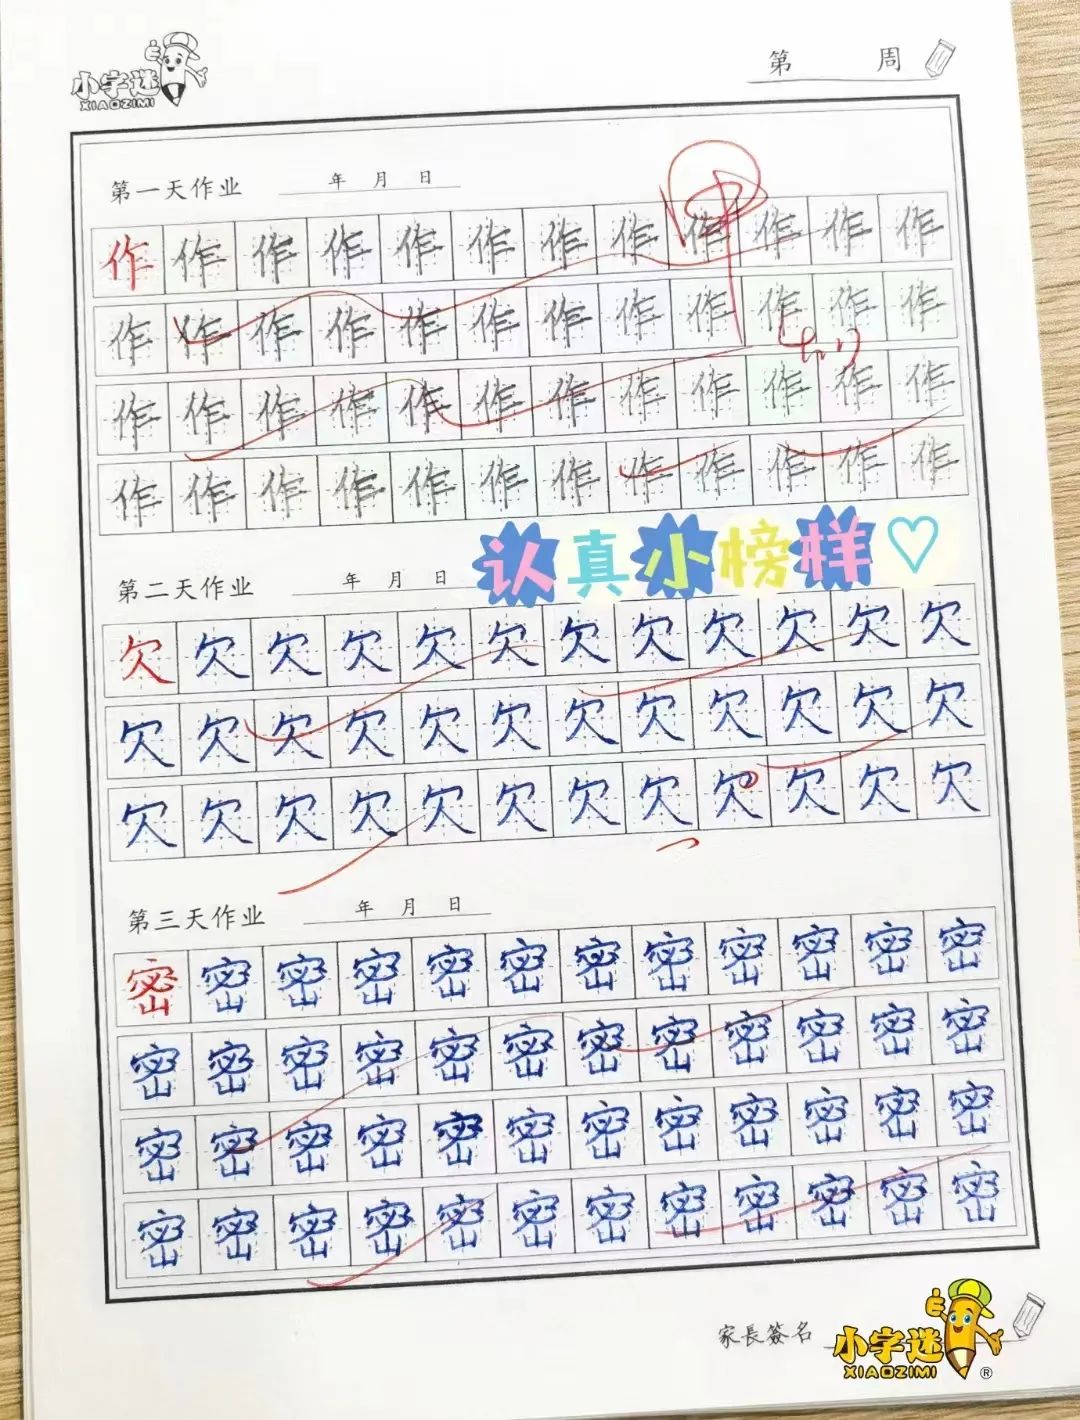 小字迷
XIAOZIMI
第 周
第一天作业 年 月 日
作作作作作作作作作作作作
作作作作作作作作作作作作
作作作作作作作作作作作作
作作作作作作作作作作作作
认真小榜样♡
第二天作业 年 月 日
欠欠欠欠欠欠欠欠欠欠欠欠
欠欠欠欠欠欠欠欠欠欠欠欠
欠欠欠欠欠欠欠欠欠欠欠欠
第三天作业 年 月 日
密密密密密密密密密密密密
密密密密密密密密密密密密
密密密密密密密密密密密密
密密密密密密密密密密密密
家長簽名
小字迷
XIAOZIMI®